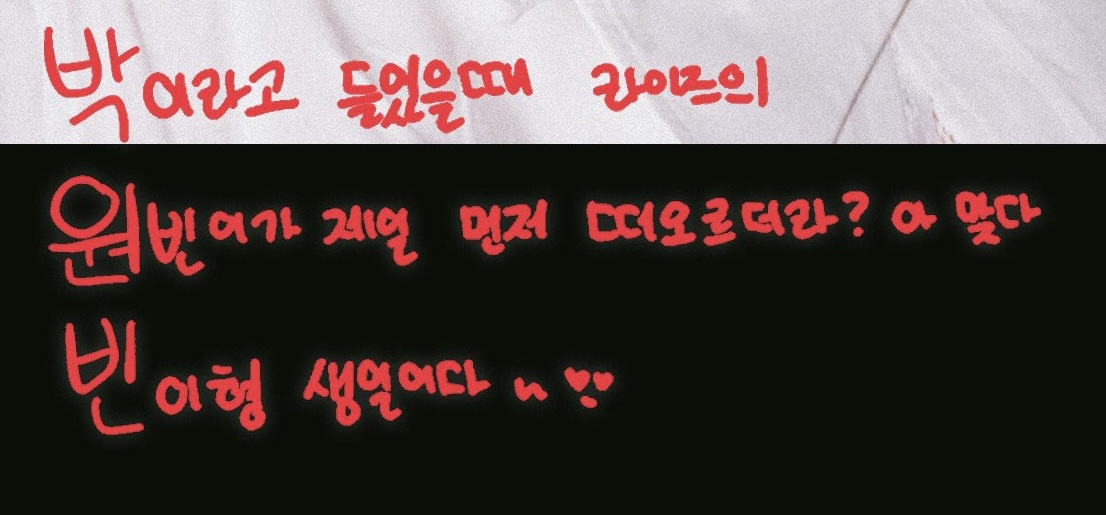 박이라고 들었을때 라이즈의
원빈이가 제일 먼저 떠오르더라? 아 맞다
빈이형 생일이다 ㅎ